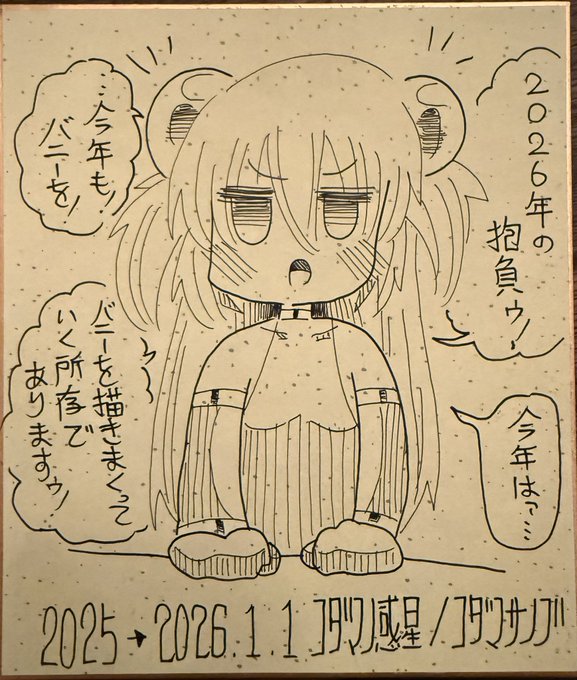 2026年の
抱負ゥ!
今年は?…
…今年も!
バニーを!
バニーを描きまくって
いく所存で
ありますゥ!
2025→2026.1.1 コダマノ惑星/コダマサノブ